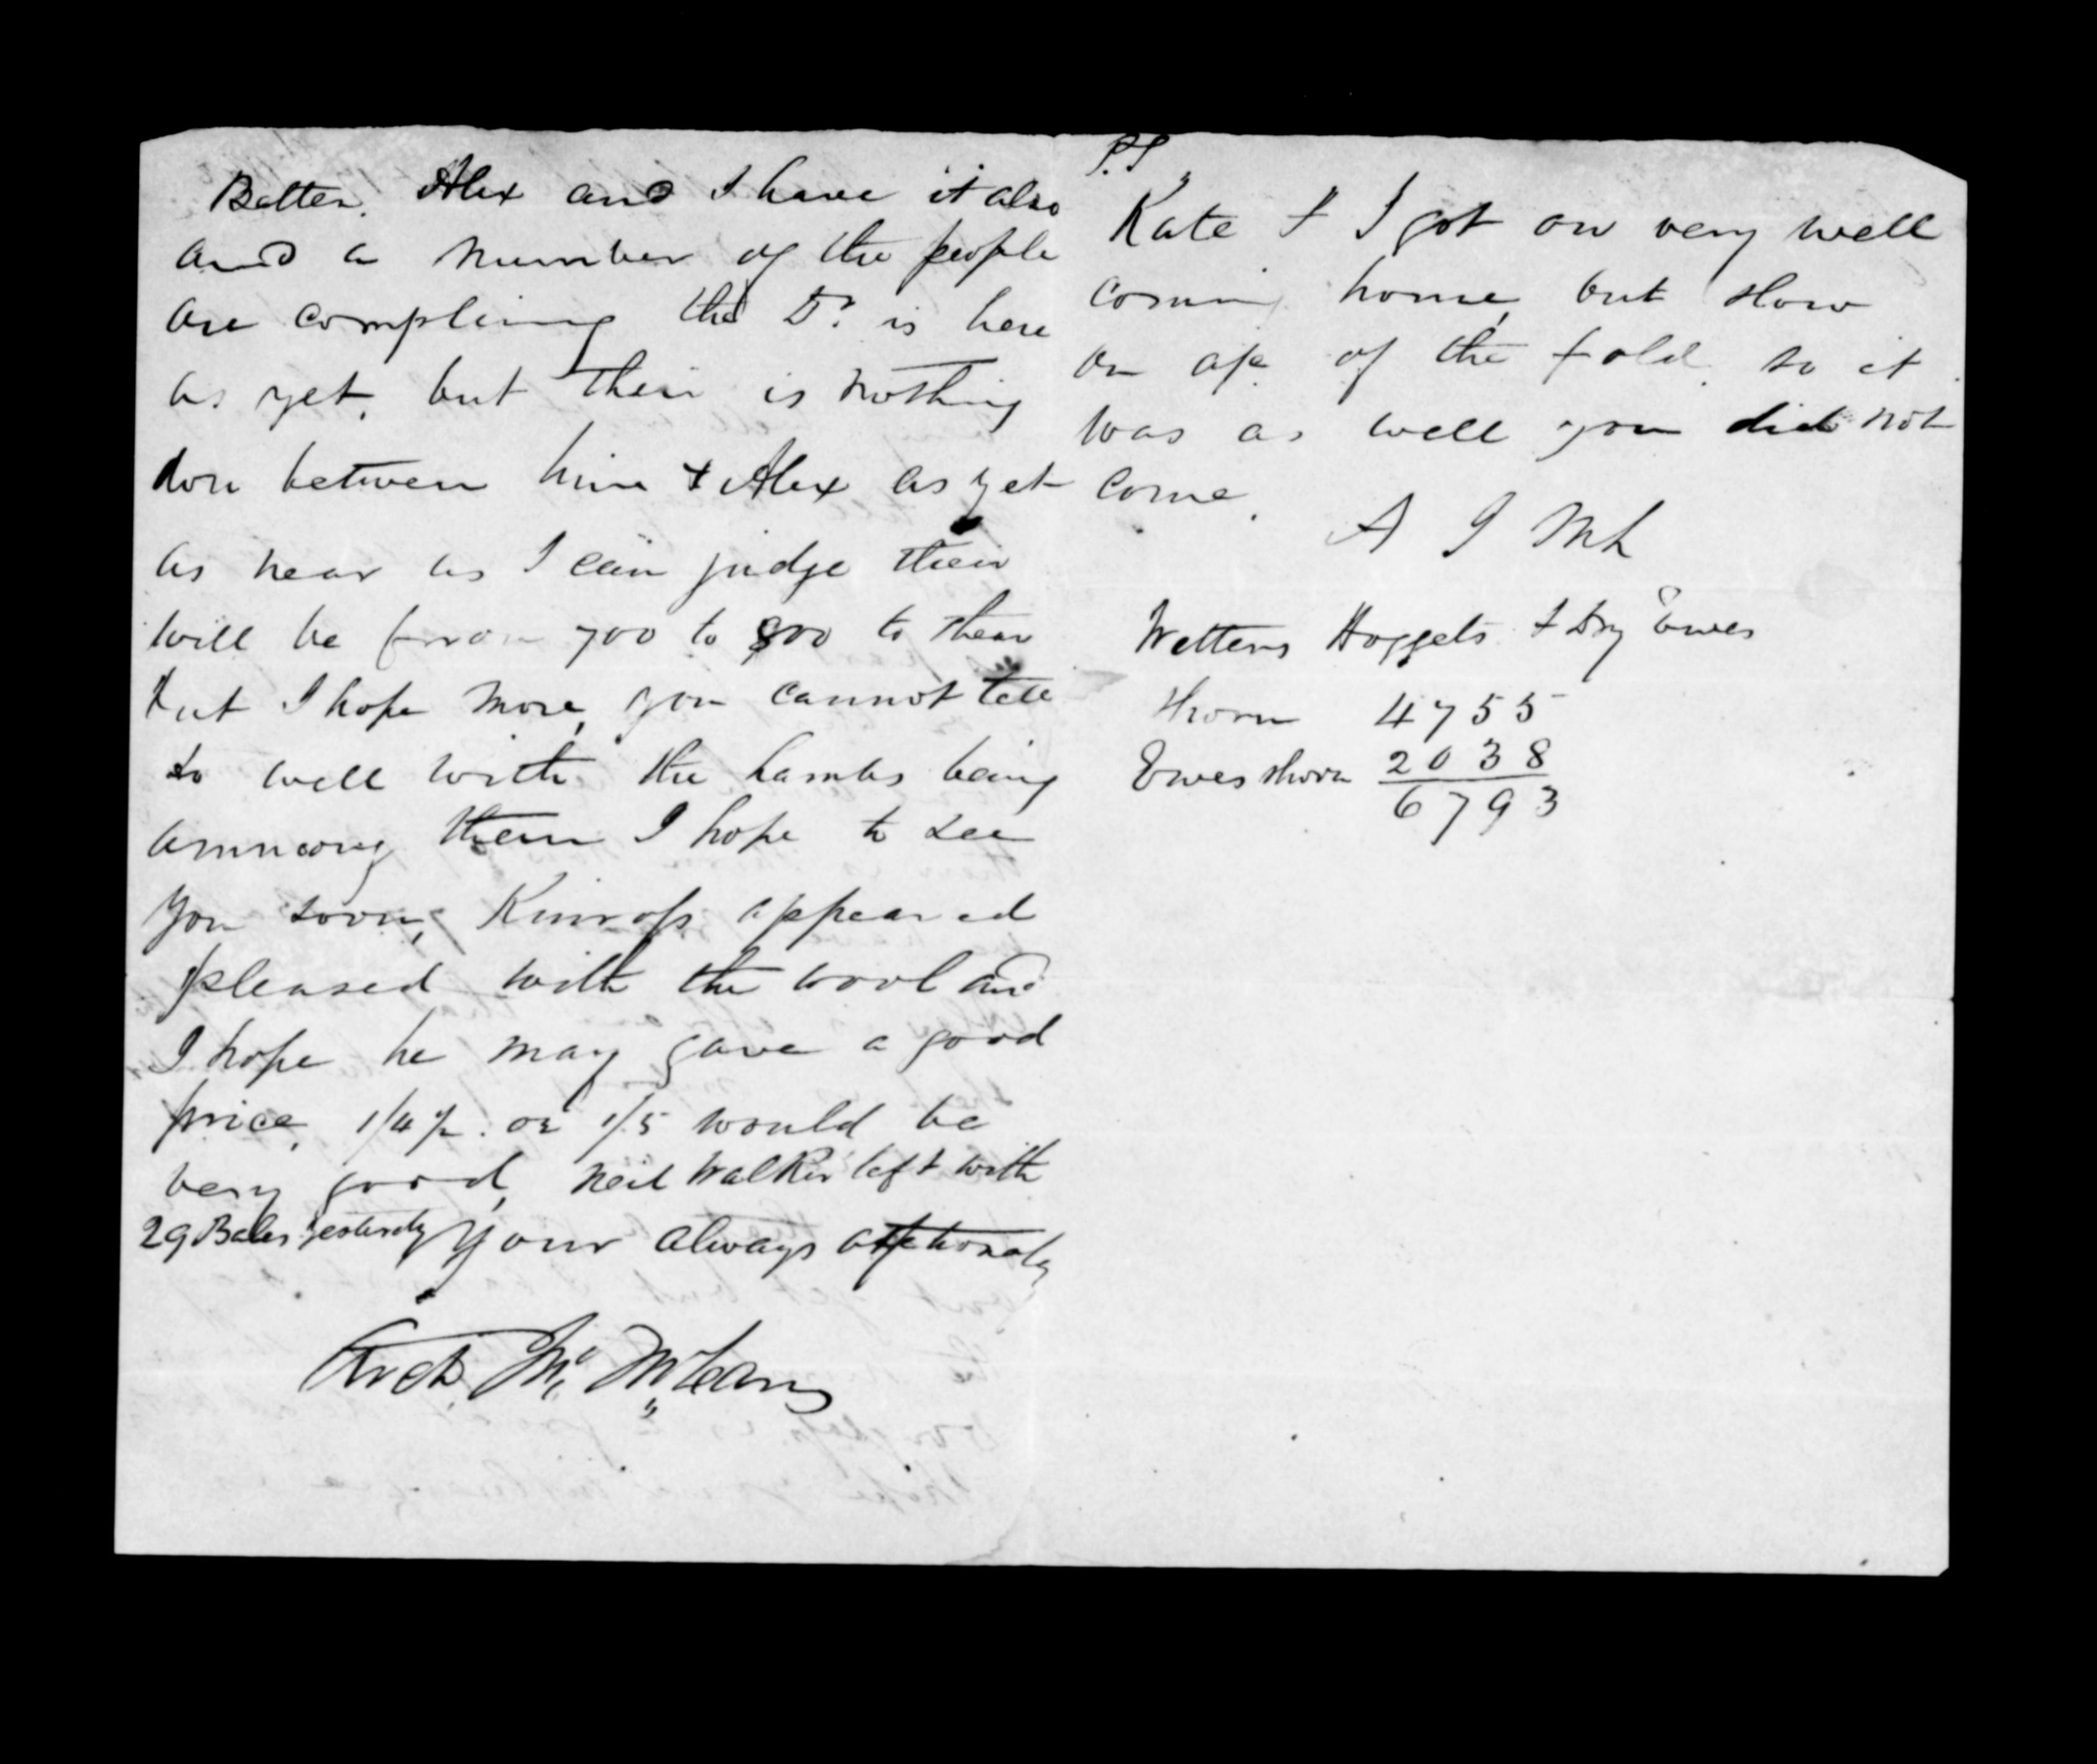 Better. Alex and I have it also
and a number of the people
are complining the Dr. is here
as yet, but their is nothing
don between him & Alex as yet
as near as I can judge their
will be from 700 to 800 to shear
but I hope more, you cannot tell
so well with the lambs being
amnoong them I hope to see
you soon, Kinross appeared
pleased with the wool and
I hope he may gave a good
price, 1/4½ or 1/5 would be
very good, Neil Walker left with
29 Bales yesterdy Your always afftionaly
Archd. Jn. McLean
P.S.
Kate & I got on very well
coming home, but slow
on a/c of the fold, so it
was as well you did not
come.
A J ML
Wettens Hoggets & Dry Ewes
Shorn 4755
Ewes shorn 2038
6793